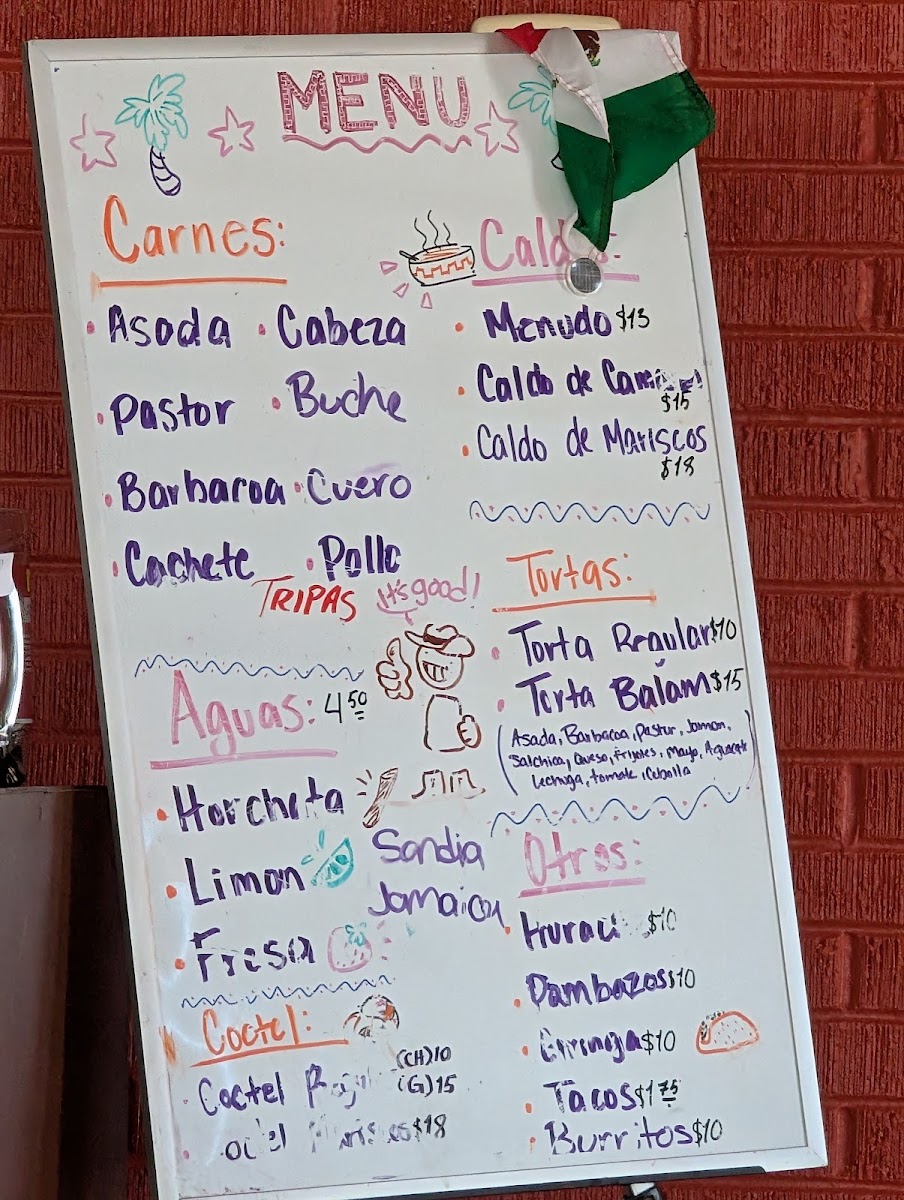 MENU
Carnes:
• Asada • Cabeza
• Pastor • Buche
• Barbacoa • Cuero
• Cachete • Pollo
TRIPAS
It's good!
Aguas: 4.50
• Horchata
• Limon
• Fresa
Sandia
Jamaica
Coctel:
Coctel (CH)10
(G)15
$18
• Menudo $13
• Caldo de
$15
• Caldo de Mariscos
$18
Tortas:
• Torta Regular $10
• Torta Balam $15
(Asada, Barbacoa, Pastor, Jamon,
Salchica, Queso, Frijoles, Mayo, Aguacate
Lechuga, tomate, Cebolla)
Otros:
• $10
• Pambazos $10
• Gringa $10
• Tacos $1.75
• Burritos $10